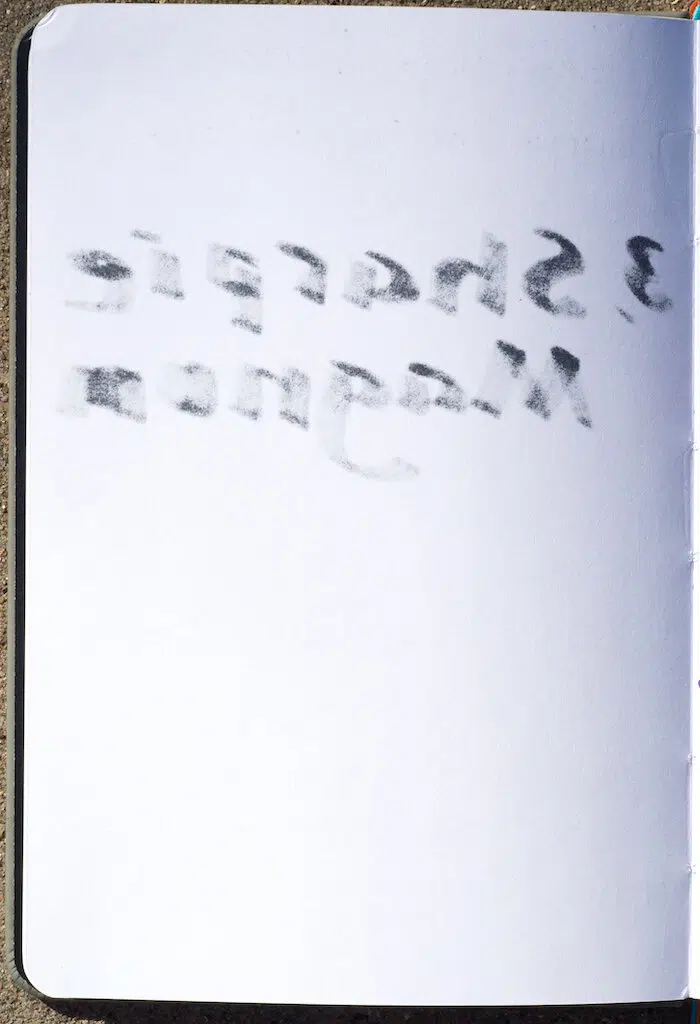 3. Sharpie
Magnum